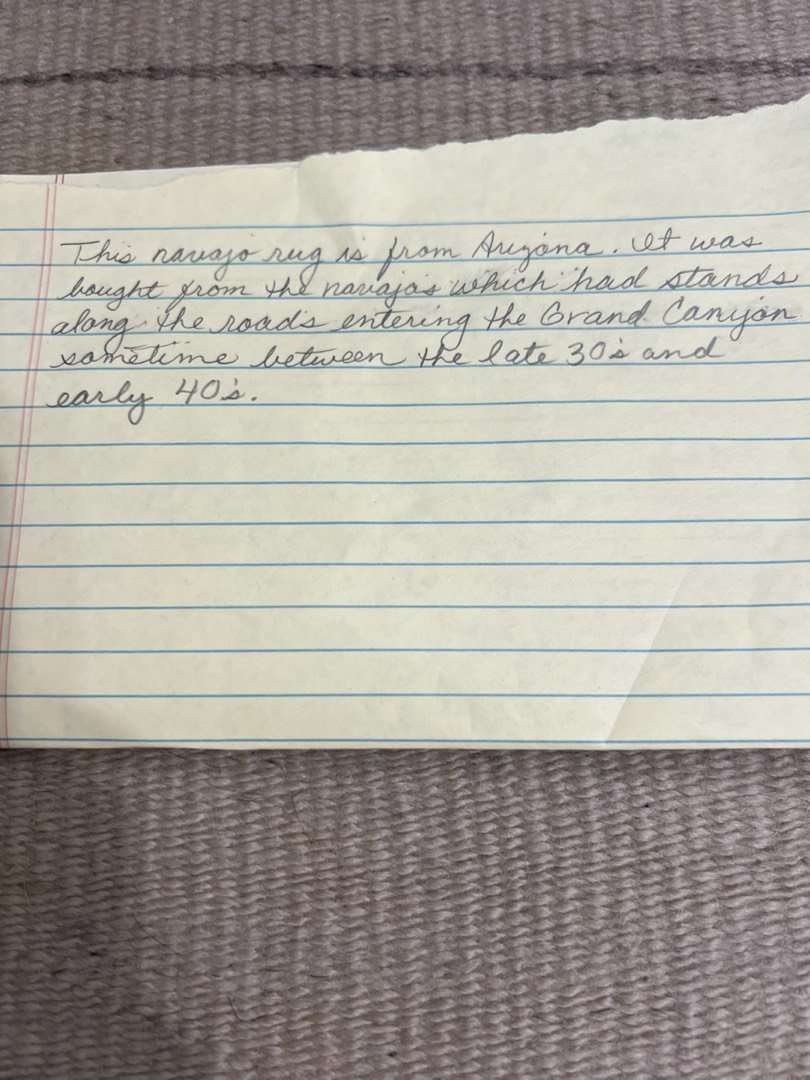 This navajo rug is from Arizona. It was
bought from the navajo's which had stands
along the roads entering the Grand Canyon
sometime between the late 30's and
early 40's.